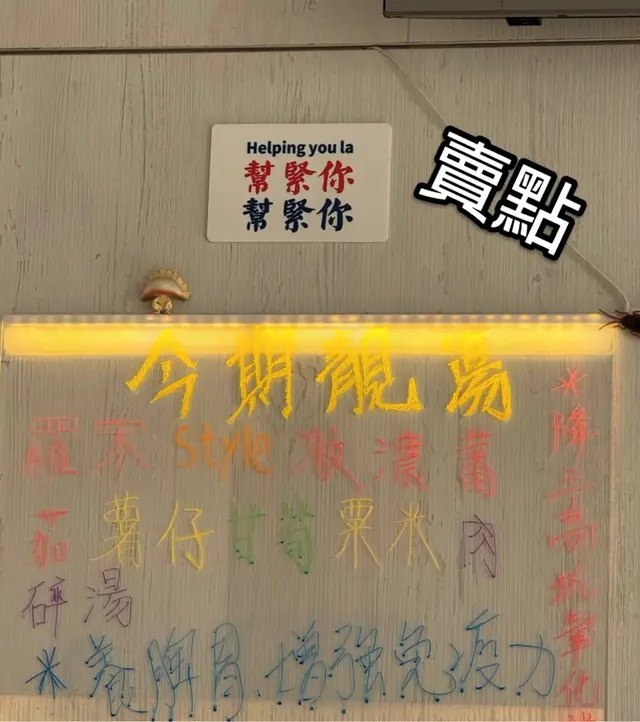 Helping you la
幫緊你
幫緊你
賣點
今期靚湯
羅宋 style 濃蕃
茄薯仔甘筍粟米肉
碎湯
*養脾胃、增強免疫力
*降三高抗氧化